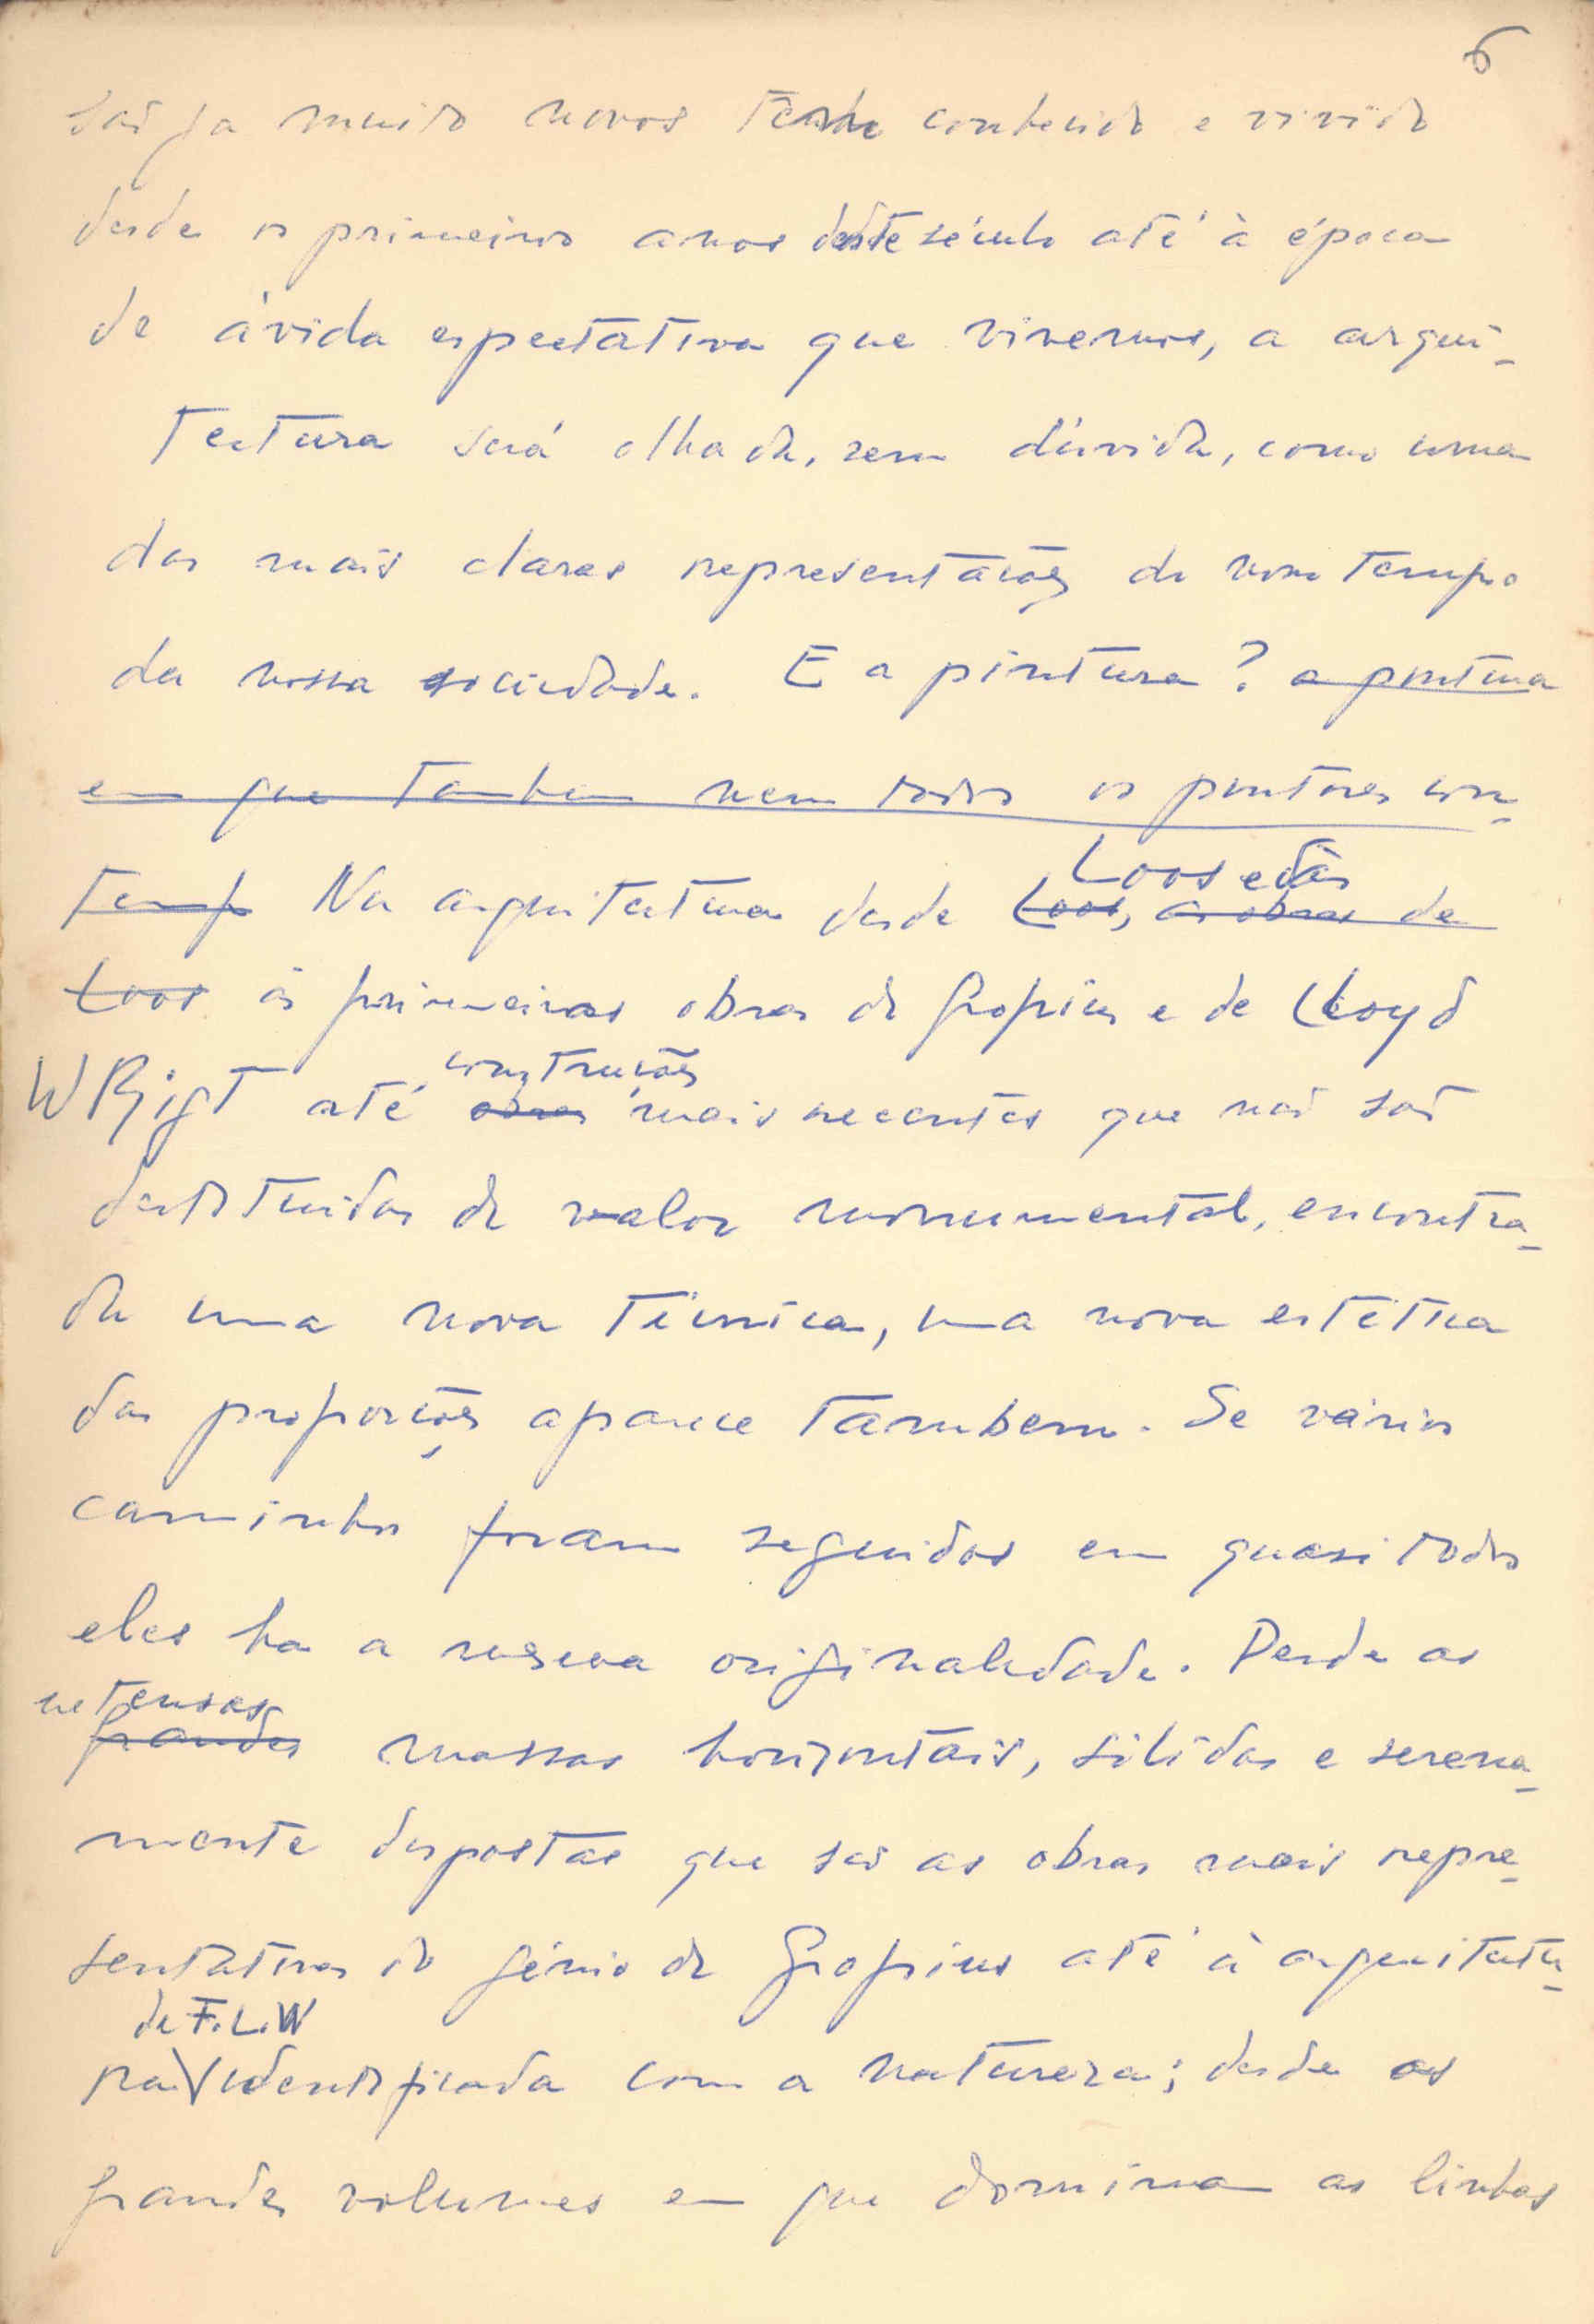 6
são ja muito novos tenha conhecido e vivido
desde os primeiros anos deste século até à época
de ávida espectativa que vivemos, a arqui-
tectura será olhada, sem dúvida, como uma
das mais claras representações do nosso tempo
da nossa sociedade. E a pintura? a pintura
em que tambem nem todos os pintores con-
temp Na arquitectura desde Loos, as obras de
Loos e das
Loos às primeiras obras de Gropius e de Lloyd
construções
WRigt até obras mais recentes que não são
destituidas de valor monumental, encontra-
da uma nova técnica, uma nova estética
das proporções aparece tambem. Se vários
caminhos foram seguidos em quasi todos
eles ha a mesma originalidade. Desde as
retensas
grandes massas horizontais, sólidas e serena-
mente dispostas que são as obras mais repre-
sentativas do génio de Gropius até à arquitectu-
de F.L.W
ra identificada com a natureza; desde os
grandes volumes em que domina as linhas